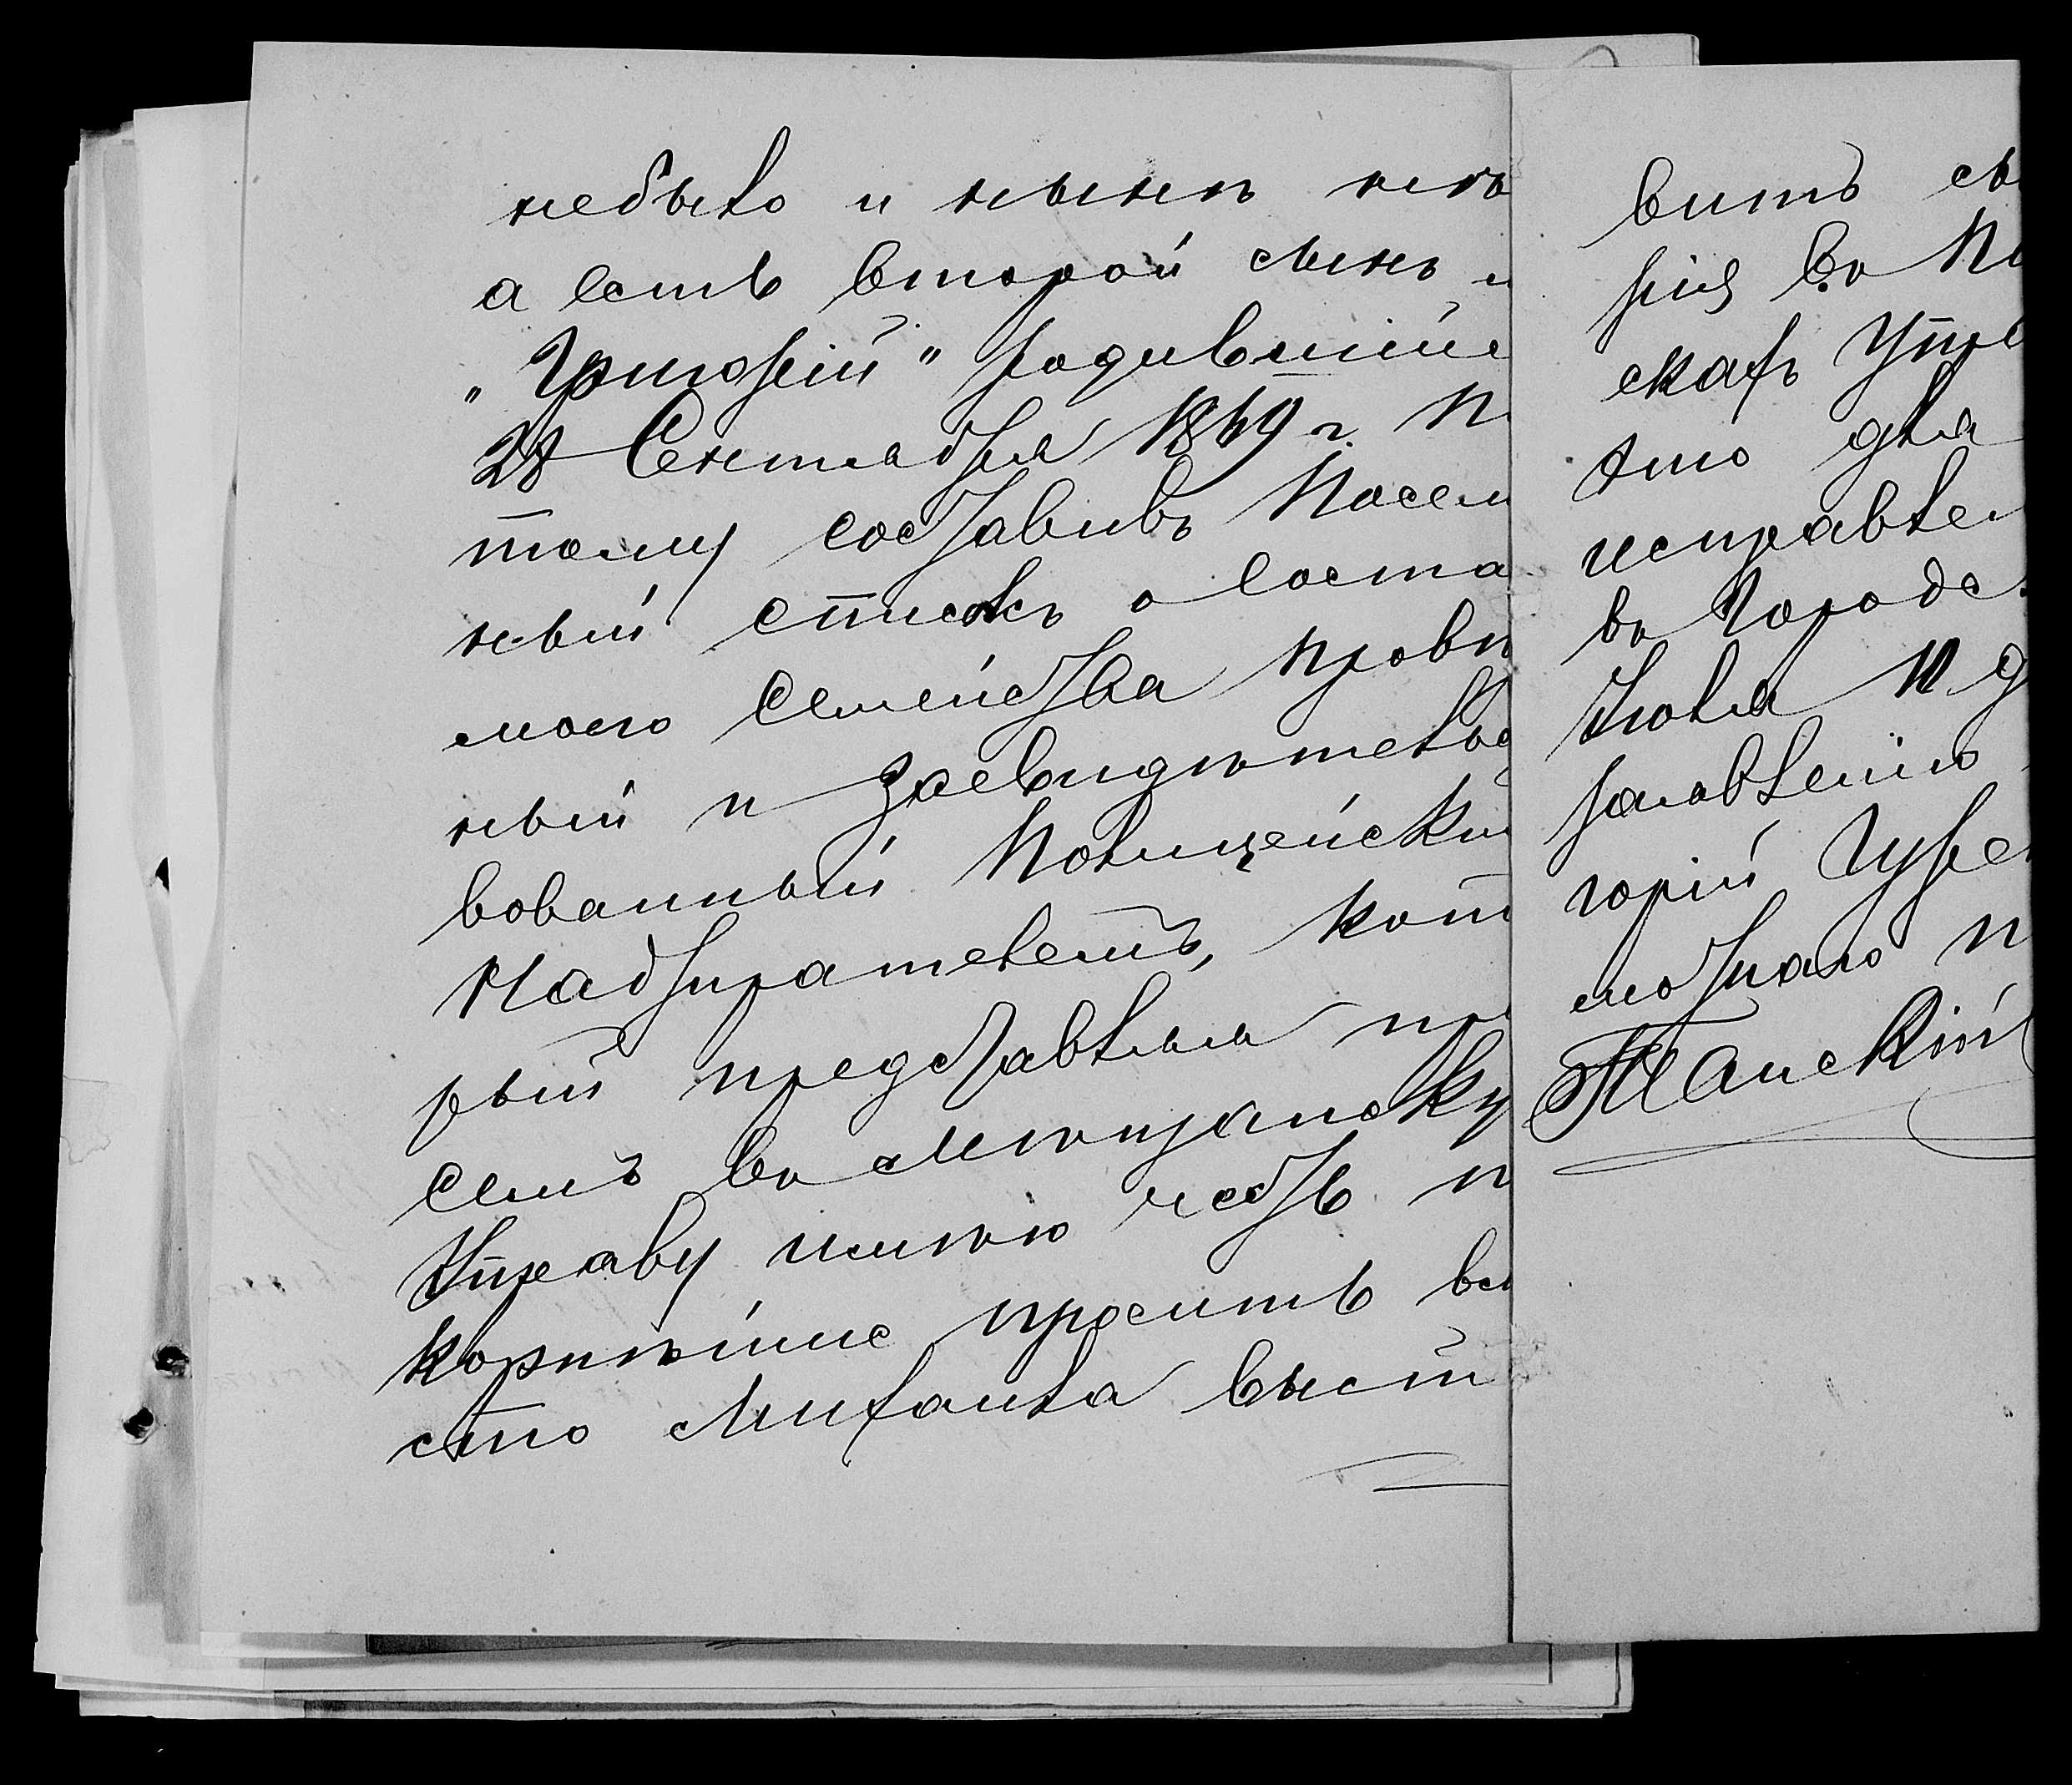 небыло и нынѣ нѣ
а есть второй сынъ и
„Григорій" родившійс
28 Сентября 1869 г. П
тому составивъ Посем
ный списокъ о соста
моего семейства провѣ
ный и засвидѣтельс
вованный Полицейски
Надзирателемъ, кот
рый представляя пр
семъ въ Мѣщанску
Управу имѣю честь п
корнѣйше просить вм
сто Михаила выст
вить
рія во
скахъ Упр
что для
исправлен
въ Городс
Іюля 12 д
заявленію
горій Гуре
мѣщ